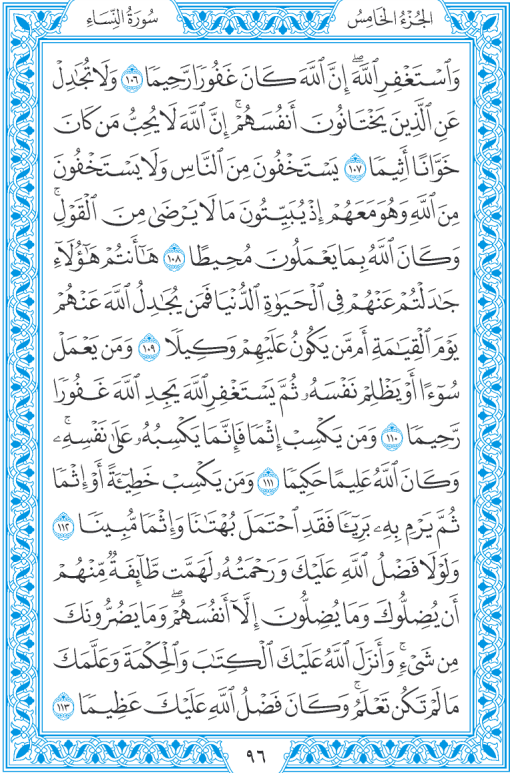 الجُزْءُ الخَامِسُ
سُورَةُ النِّسَاءِ
وَٱسْتَغْفِرِ ٱللَّهَۖ إِنَّ ٱللَّهَ كَانَ غَفُورًا رَّحِيمًا ١٠٦ وَلَا تُجَٰدِلْ
عَنِ ٱلَّذِينَ يَخْتَانُونَ أَنفُسَهُمْۚ إِنَّ ٱللَّهَ لَا يُحِبُّ مَن كَانَ
خَوَّانًا أَثِيمًا ١٠٧ يَسْتَخْفُونَ مِنَ ٱلنَّاسِ وَلَا يَسْتَخْفُونَ
مِنَ ٱللَّهِ وَهُوَ مَعَهُمْ إِذْ يُبَيِّتُونَ مَا لَا يَرْضَىٰ مِنَ ٱلْقَوْلِۚ
وَكَانَ ٱللَّهُ بِمَا يَعْمَلُونَ مُحِيطًا ١٠٨ هَٰٓأَنتُمْ هَٰٓؤُلَآءِ
جَٰدَلْتُمْ عَنْهُمْ فِي ٱلْحَيَوٰةِ ٱلدُّنْيَا فَمَن يُجَٰدِلُ ٱللَّهَ عَنْهُمْ
يَوْمَ ٱلْقِيَٰمَةِ أَم مَّن يَكُونُ عَلَيْهِمْ وَكِيلًا ١٠٩ وَمَن يَعْمَلْ
سُوٓءًا أَوْ يَظْلِمْ نَفْسَهُۥ ثُمَّ يَسْتَغْفِرِ ٱللَّهَ يَجِدِ ٱللَّهَ غَفُورًا
رَّحِيمًا ١١٠ وَمَن يَكْسِبْ إِثْمًا فَإِنَّمَا يَكْسِبُهُۥ عَلَىٰ نَفْسِهِۦۚ
وَكَانَ ٱللَّهُ عَلِيمًا حَكِيمًا ١١١ وَمَن يَكْسِبْ خَطِيٓـَٔةً أَوْ إِثْمًا
ثُمَّ يَرْمِ بِهِۦ بَرِيٓـًٔا فَقَدِ ٱحْتَمَلَ بُهْتَٰنًا وَإِثْمًا مُّبِينًا ١١٢
وَلَوْلَا فَضْلُ ٱللَّهِ عَلَيْكَ وَرَحْمَتُهُۥ لَهَمَّت طَّآئِفَةٌ مِّنْهُمْ
أَن يُضِلُّوكَ وَمَا يُضِلُّونَ إِلَّآ أَنفُسَهُمْۖ وَمَا يَضُرُّونَكَ
مِن شَيْءٍۚ وَأَنزَلَ ٱللَّهُ عَلَيْكَ ٱلْكِتَٰبَ وَٱلْحِكْمَةَ وَعَلَّمَكَ
مَا لَمْ تَكُن تَعْلَمُۚ وَكَانَ فَضْلُ ٱللَّهِ عَلَيْكَ عَظِيمًا ١١٣
٩٦